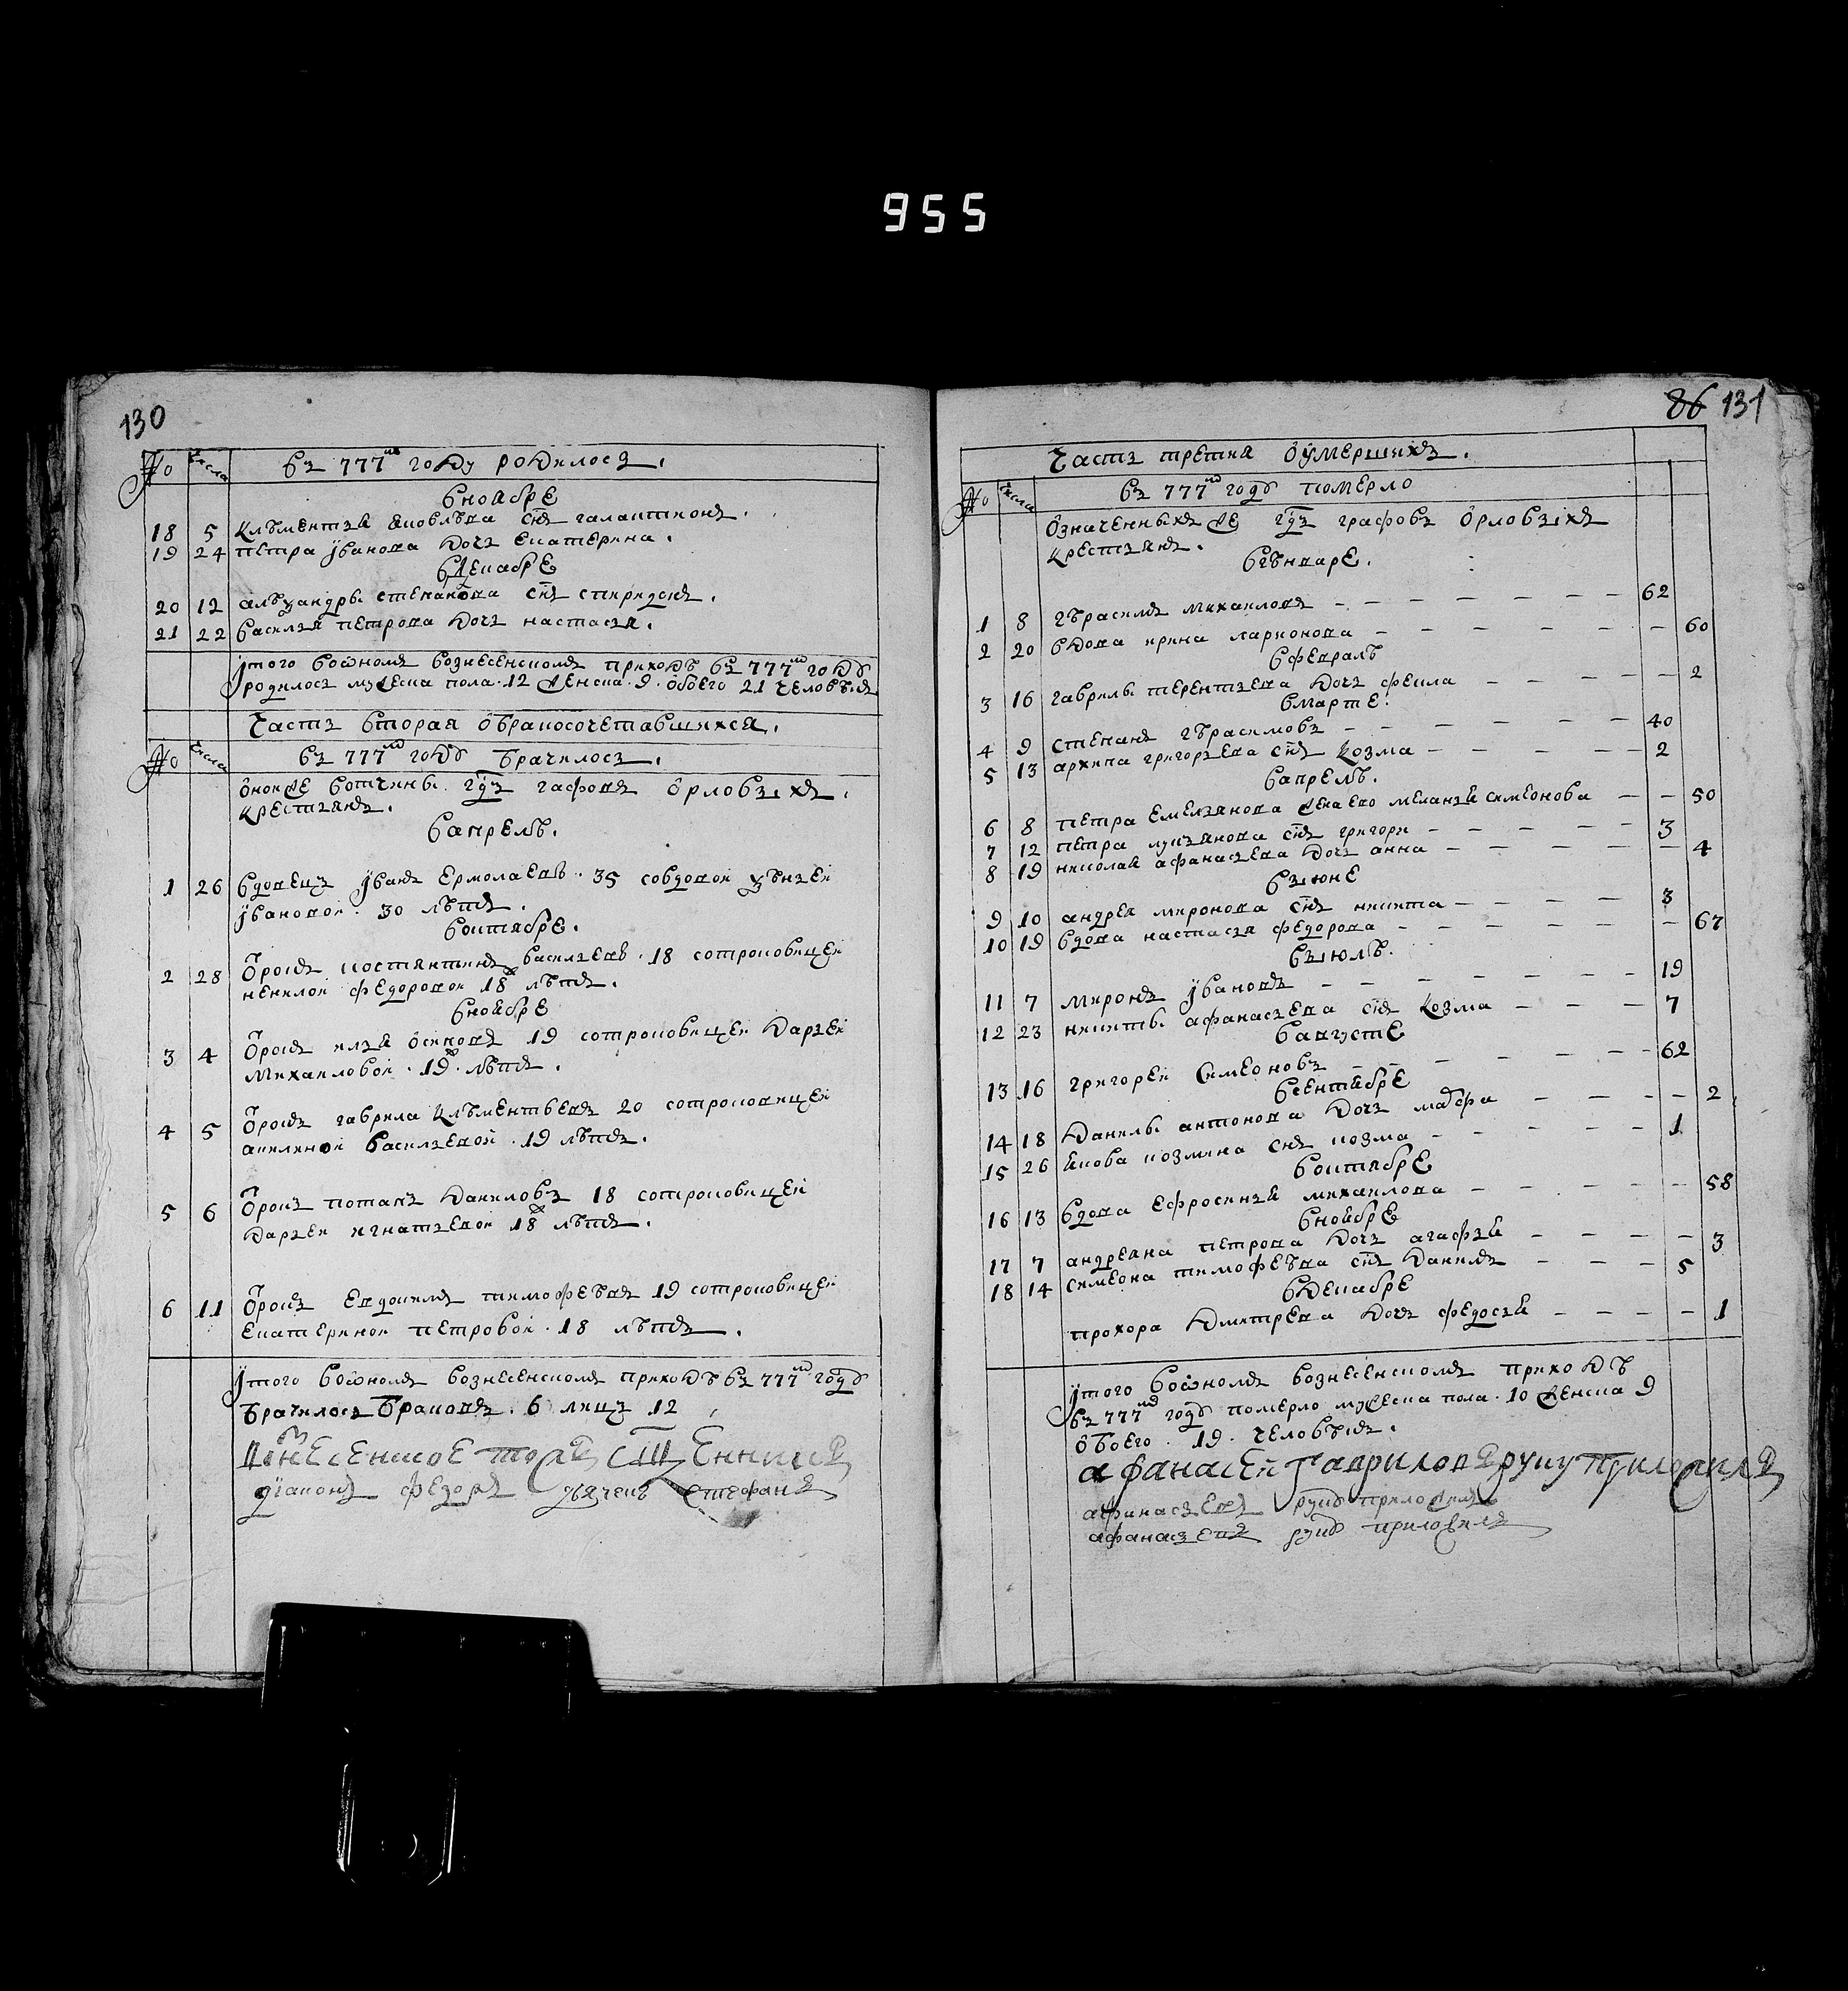 955
130
№ числа въ 777м году родилось.
вноября
18 5 клѣментья яковлѣва снъ галактионъ.
19 24 петра iванова дочь екатерина.
вдекабре
20 12 алѣѯандры степанова снъ спиридонъ.
21 22 василья петрова дочь настасья.
iтого воѡномъ вознесенскомъ приходѣ въ 777м годѣ
родилось мужеска пола. 12 женска. 9. обоего 21 человѣкъ
Часть вторая обракосочетавшихся.
№ числа въ 777м годѣ брачилось.
онои же вотчины. гдъ гафовъ орловыхъ.
крестьянъ.
вапрелѣ.
1 26 вдовецъ iванъ ермолаевъ. 35 совдовои ѯѣньеи
iвановои. 30 лѣтъ.
воктябре.
2 28 отрокъ костянтинъ васильевъ. 18 сотроковицеи
ненилои федоровои 18 лѣтъ.
вноябре
3 4 отрокъ илья осиповъ 19 сотроковицеи дарьеи
михаиловои. 19. лѣтъ.
4 5 отрокъ гаврила клѣментьевъ 20 сотроковицеи
акилинои васильевои. 19 лѣтъ.
5 6 отрокъ потапъ даниловъ 18 сотроковицеи
дарьеи игнатьевои 18 лѣтъ.
6 11 отрокъ евдокимъ тимофѣевъ 19 сотроковицеи
екатеринои петровои. 18 лѣтъ.
iтого воѡномъ вознесенскомъ приходѣ въ 777м годѣ
брачилось браковъ. 6 лицъ 12
дiаконъ федоръ дьячекъ стефанъ
86 131
Часть третия оумершихъ.
№ числа въ 777м годѣ померло
означенныхъ же гдъ графовъ орловыхъ
крестьянъ.
вгѣнваре.
1 8 гѣрасимъ михаиловъ – – – – – – – 62
2 20 вдова ирина ларионова – – – – – – – 60
вфевралѣ
3 16 гаврилы терентьева дочь фекла – – – – – 2
вмарте.
4 9 степанъ гѣрасимовъ – – – – – – – 40
5 13 архипа григорьева снъ козма – – – – – 2
вапрелѣ.
6 8 петра емельянова жена ево меланья симеонова – – 50
7 12 петра лукьянова снъ григори – – – – – 3
8 19 николая афанасьева дочь анна – – – – – – 4
въiюне
9 10 андрея миронова снъ никита – – – – 3
10 19 вдова настасья федорова – – – – – – 67
въiюлѣ.
11 7 миронъ iвановъ – – – – – – – 19
12 23 никиты афанасьева снъ козма – – – 7
вавгусте
13 16 григореи симеоновъ – – – – – – 62
всентябре
14 18 данилы антонова дочь мавфа – – – – 2
15 26 якова козмина снъ козма – – – – – 1
воктябре
16 13 вдова ефросинья михаилова – – – – – 58
вноябре
17 7 андреяна петрова дочь агафья – – – – 3
18 14 симеона тимофѣева снъ данилъ – – – 5
вдекабре
прохора дмитрева дочь федосья – – – – 1
iтого воѡномъ вознесенскомъ приходѣ
въ 777м годѣ померло мужеска пола. 10 женска 9
обоего. 19. человѣкъ.
афанасеи гавриловъ руку приложилъ
афанасьевъ рукѣ приложилъ
афанасьевъ рукѣ приложилъ